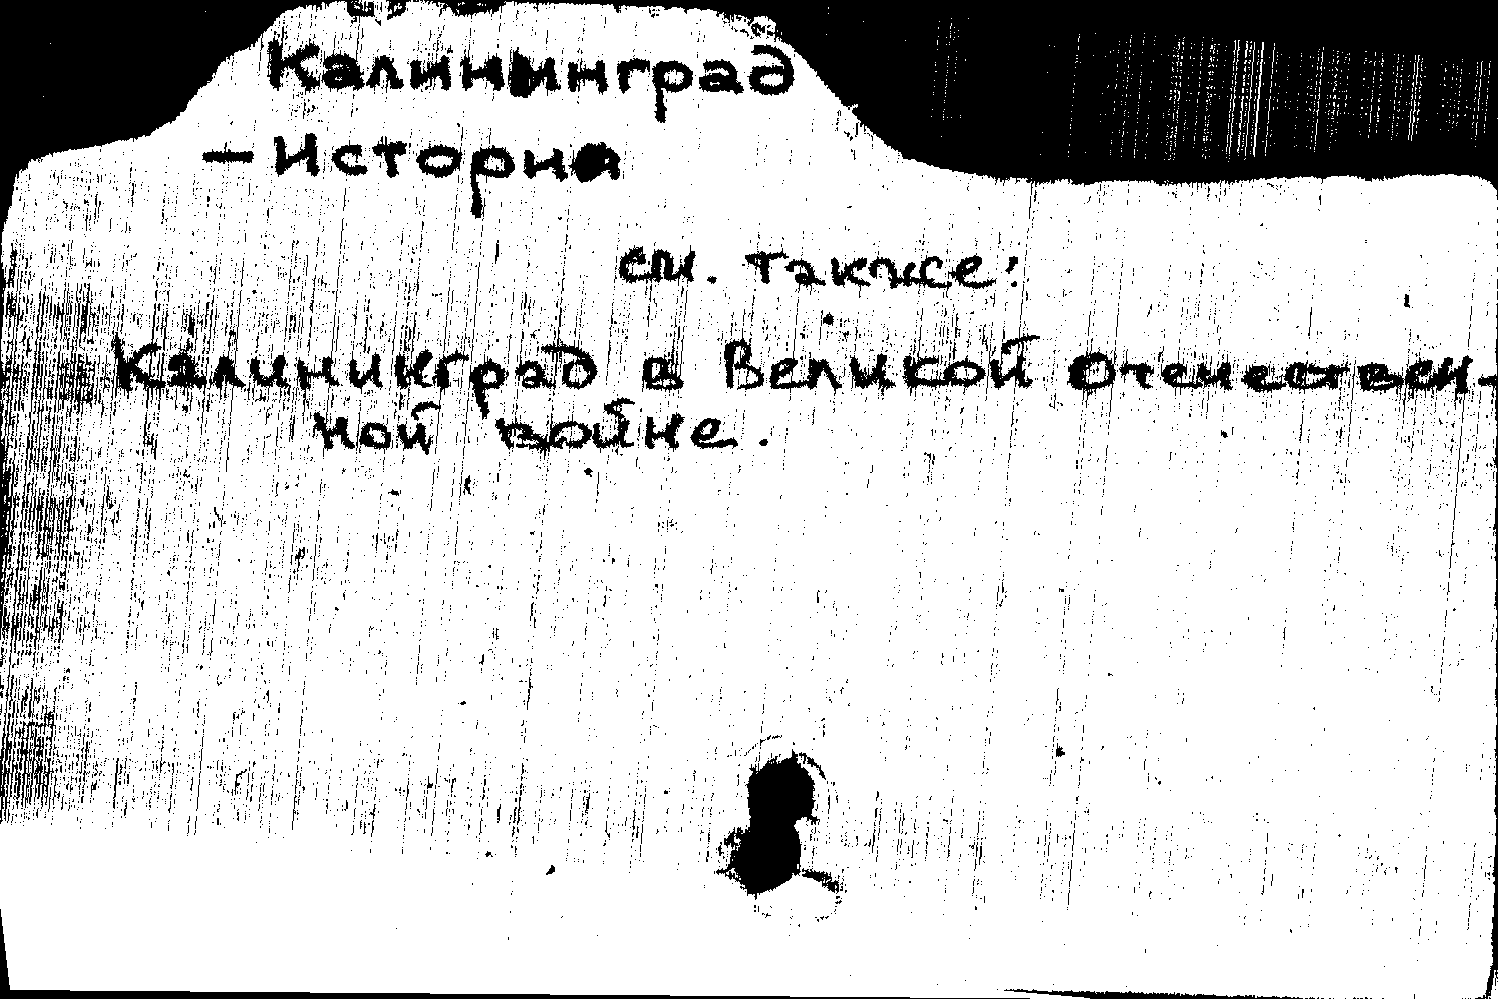 Калининград
— История
см. также:
Калининград в Великой Отечествен-
ной войне.